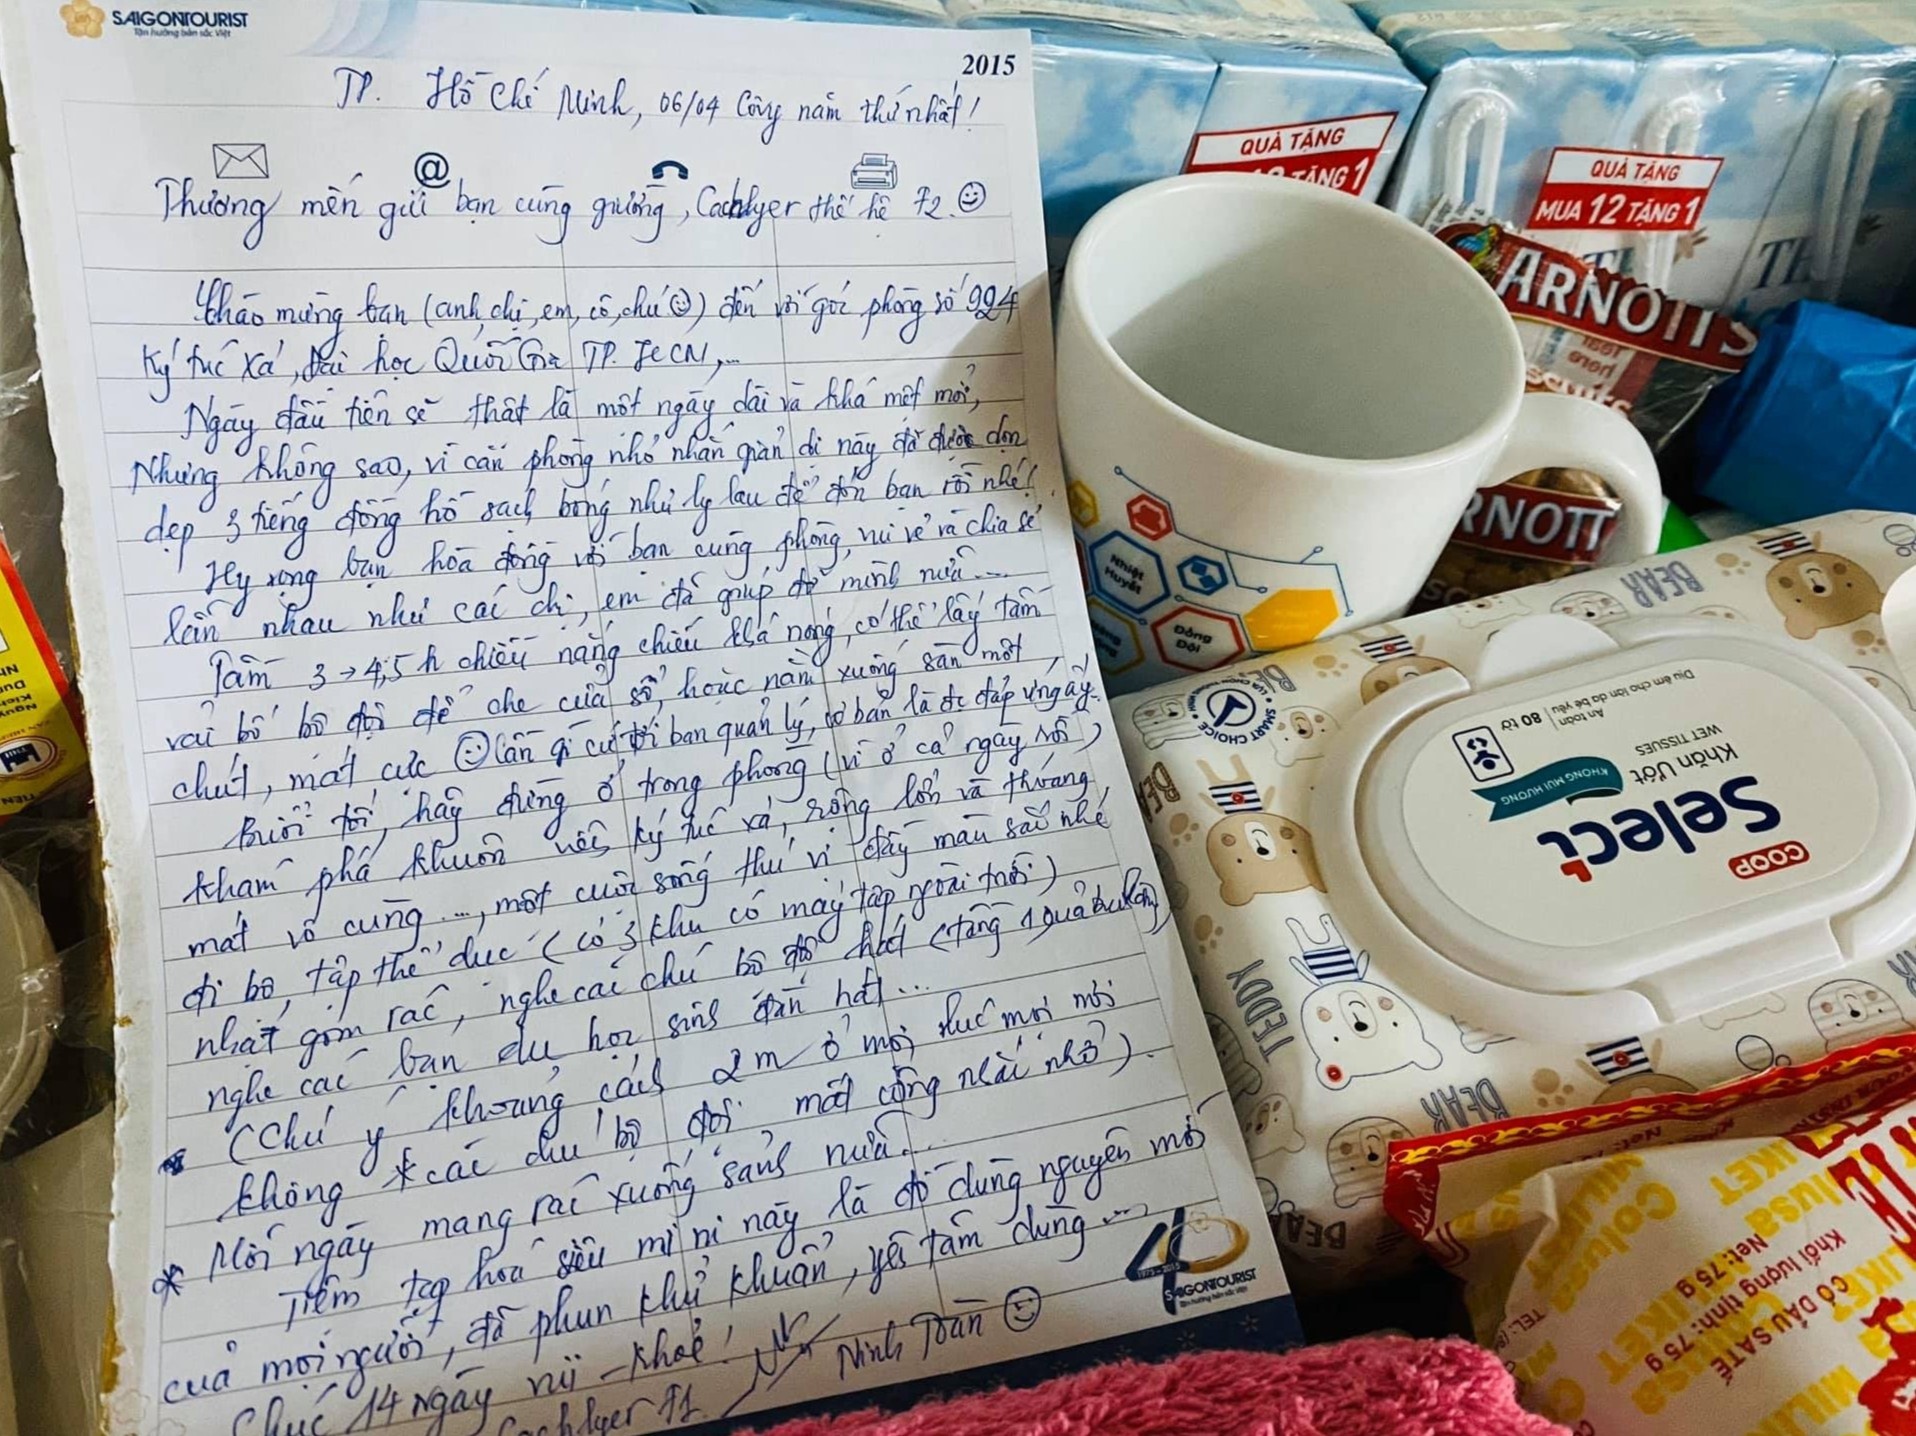 SAIGONTOURIST
Tận hưởng bản sắc Việt
2015
TP. Hồ Chí Minh, 06/04 Côvy năm thứ nhất!
Thương mến gửi bạn cùng giường, Cachlyer thế hệ F2.
Chào mừng bạn (anh, chị, em, cô, chú) đến với gói phòng số 924
Ký túc xá, Đại học Quốc Gia TP. HCM,...
Ngày đầu tiên sẽ thật là một ngày dài và khá mệt mỏi,
Nhưng không sao, vì căn phòng nhỏ nhắn giản dị này đã được dọn
dẹp 3 tiếng đồng hồ sạch bóng như ly lau để đón bạn rồi nhé!
Hy vọng bạn hòa đồng với bạn cùng phòng, vui vẻ và chia sẻ
lẫn nhau như các chị, em đã giúp đỡ mình nữa...
Tầm 3 → 4,5 h chiều nắng chiếu khá nóng, có thể lấy tấm
vải bố bộ đội để che cửa sổ, hoặc nằm xuống sàn một
chút, mát cực Cần gì cứ tới ban quản lý, cơ bản là đc đáp ứng ấy.
Buổi tối, hãy đừng ở trong phòng (vì ở cả ngày rồi)
khám phá khuôn viên ký túc xá, rộng lớn và thoáng
mát vô cùng..., một cuộc sống thú vị đầy màu sắc nhé
đi bộ, tập thể dục (có 3 khu có máy tập ngoài trời)
nhặt gom rác, nghe các chú bộ đội hát (tầng 1
nghe các bạn du học sinh đàn hát...
(Chú ý khoảng cách 2m ở mọi lúc mọi nơi
không * các chú bộ đội mất công nhắc nhở).
* Mỗi ngày mang rác xuống sảnh nữa...
Tiệm tạp hoá siêu mi ni này là đồ dùng nguyên mới
của mọi người, đã phun khử khuẩn, yên tâm dùng...
Chúc 14 ngày vui - khoẻ!
Cachlyer F1.
Ninh Trần
40
1975-2015
SAIGONTOURIST
Tận hưởng bản sắc Việt
QUÀ TẶNG
TẶNG 1
QUÀ TẶNG
MUA 12 TẶNG 1
TH
ARNOTT'S
ARNOTT
Nhiệt
Huyết
Đồng
Đội
BEAR
TEDDY
BEAR
SMART CHOICE
COOP
Select
Khăn Ướt
WET TISSUES
KHÔNG MÙI HƯƠNG
An toàn
80 tờ
Dịu êm cho làn da bé yêu
Colusa
MILIKET
Net: 75 g
Khối lượng tịnh: 75 g
CÓ DẦU SATẾ